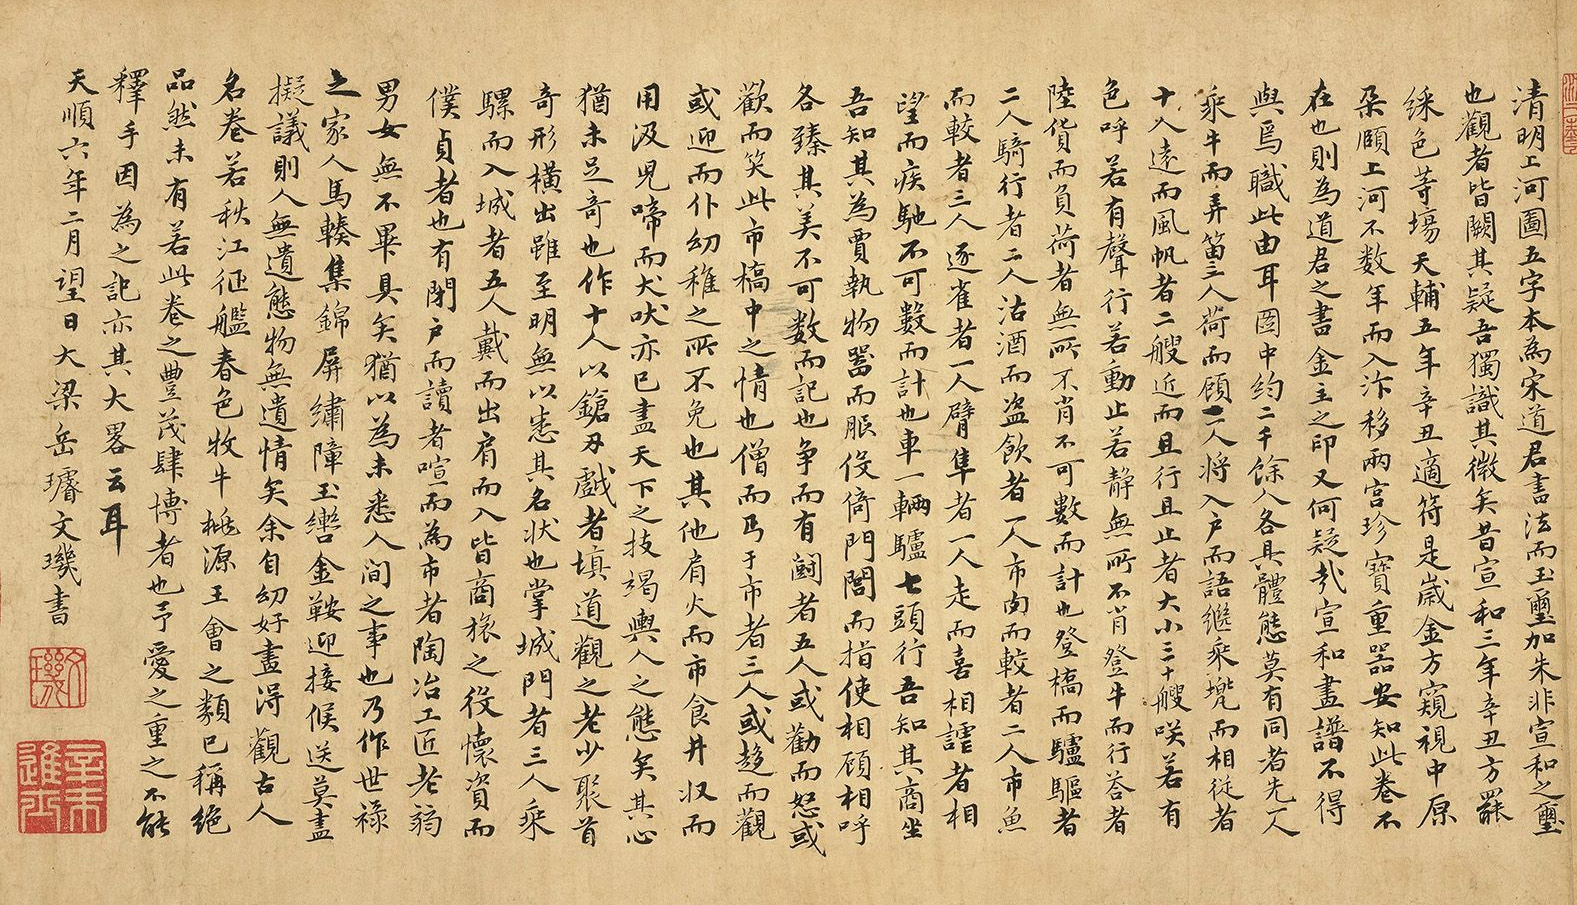 清明上河圖五字本為宋道君書法而玉璽加朱非宣和之璽
也觀者皆闕其疑吾獨識其微矣昔宣和三年辛丑方羅
綵色等塲天輔五年辛丑適符是歲金方窺視中原
朶頤上河不数年而入汴移兩宮珍寶重器安知此卷不
在也則為道君之書金主之印又何疑哉宣和畫譜不得
與焉職此由耳圖中約二千餘人各具體態莫有同者先一人
乘牛而弄笛三人荷而顧二人將入戸而語繼乘攙而相從者
十人遠而風帆者二艘近而且行且止者大小三十艘咲若有
色呼若有聲行若動止若靜無所不肖登牛而行荅者
陸貨而負荷者無所不肖不可數而計也登橋而驢驅者
二人騎行者二人沽酒而盗飲者一人市肉而較者二人市魚
而較者三人逐雀者一人臂隼者一人走而喜相謔者相
望而疾馳不可數而計也車一輛驢七頭行吾知其商坐
吾知其為賈執物噐而服役倚門閭而指使相顧相呼
各臻其美不可數而記也争而有鬪者五人或勸而怒或
歡而笑此市橋中之情也僧而丐于市者三人或趍而觀
或迎而仆幼稚之所不免也其他肩火而市食井収而
用汲兒啼而犬吠亦已盡天下之技竭輿人之態矣其心
猶未足竒也作十人以鎗刃戲者填道觀之老少聚首
竒形橫出雖至明無以悉其名状也掌城門者三人乘
騾而入城者五人戴而出肩而入皆商旅之役懷資而
僕貞者也有閉戸而讀者喧而為市者陶冶工匠老弱
男女無不畢具矣猶以為未悉人间之事也乃作世禄
之家人馬輳集錦屏繡障玉轡金鞍迎接候送莫盡
擬議則人無遺態物無遺情矣余自幼好畫淂觀古人
名卷若秋江征艦春色牧牛桃源王會之類已稱絶
品然未有若此卷之豐茂肆博者也予愛之重之不能
釋手因為之記亦其大畧云耳
天順六年二月望日大梁岳璿文璣書
文璣
辛未進士